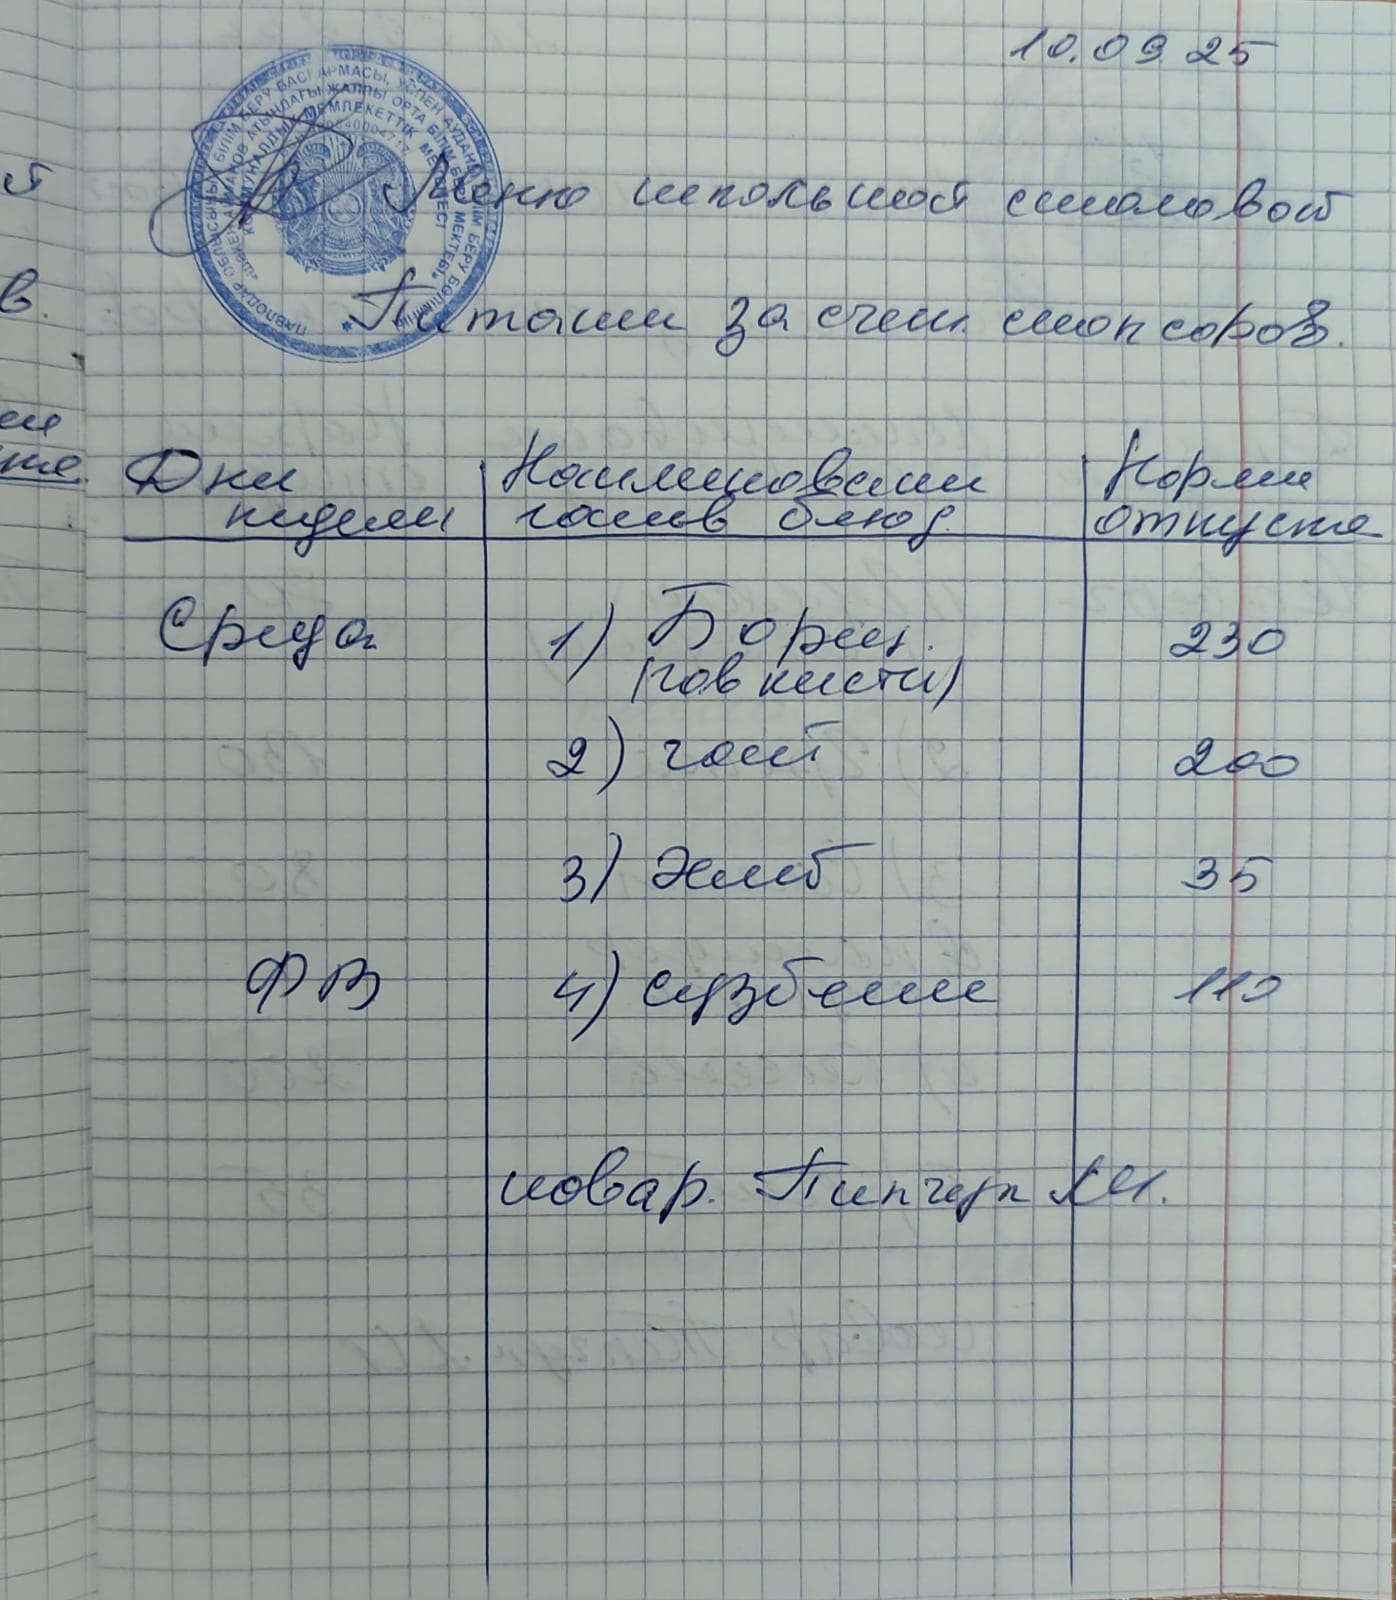 10.09.25
Меню школьной столовой
Питание за счет спонсоров.
Дни Наименование Норма
недели блюд. отпуска
Среда 1) Борщ. 230
(гов кисти)
2) чай 200
3) Хлеб 35
ФВ 4) 110
повар. Пипчук